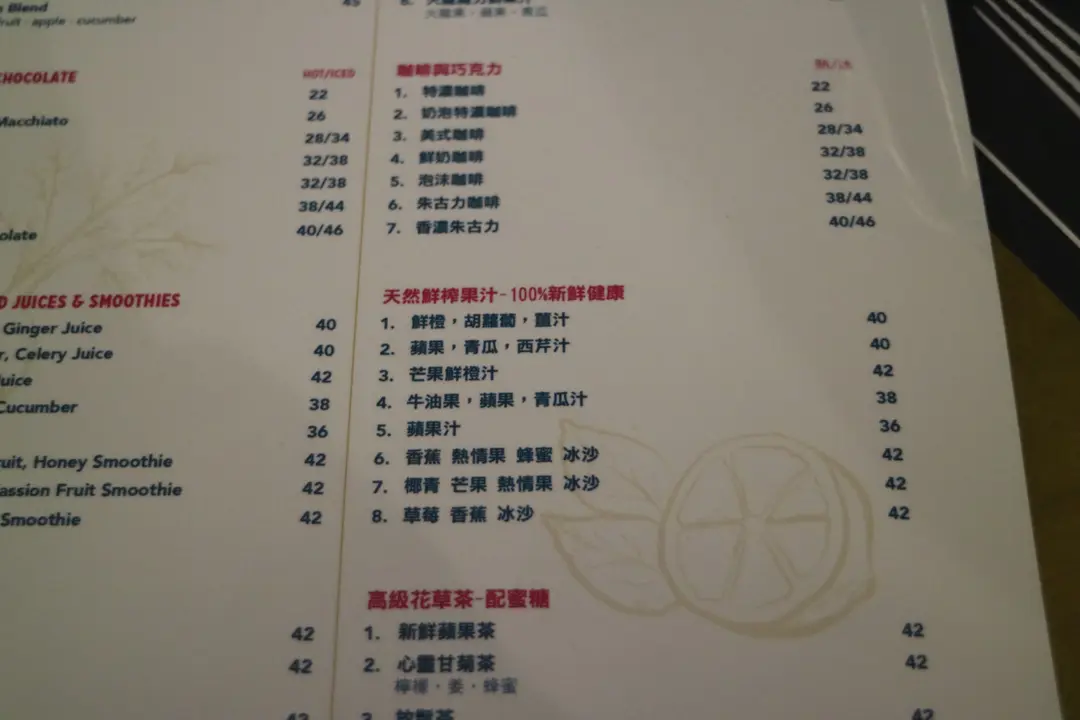 Blend 45
fruit · apple · cucumber
CHOCOLATE HOT/ICED
22
Macchiato 26
28/34
32/38
32/38
38/44
olate 40/46
D JUICES & SMOOTHIES
Ginger Juice 40
r, Celery Juice 40
Juice 42
Cucumber 38
36
ruit, Honey Smoothie 42
assion Fruit Smoothie 42
Smoothie 42
42
42
火龍果 · 蘋果 · 青瓜
咖啡與巧克力 熱/冰
1. 特濃咖啡 22
2. 奶泡特濃咖啡 26
3. 美式咖啡 28/34
4. 鮮奶咖啡 32/38
5. 泡沫咖啡 32/38
6. 朱古力咖啡 38/44
7. 香濃朱古力 40/46
天然鮮榨果汁-100%新鮮健康
1. 鮮橙,胡蘿蔔,薑汁 40
2. 蘋果,青瓜,西芹汁 40
3. 芒果鮮橙汁 42
4. 牛油果,蘋果,青瓜汁 38
5. 蘋果汁 36
6. 香蕉 熱情果 蜂蜜 冰沙 42
7. 椰青 芒果 熱情果 冰沙 42
8. 草莓 香蕉 冰沙 42
高級花草茶-配蜜糖
1. 新鮮蘋果茶 42
2. 心靈甘菊茶 42
檸檬 · 姜 · 蜂蜜